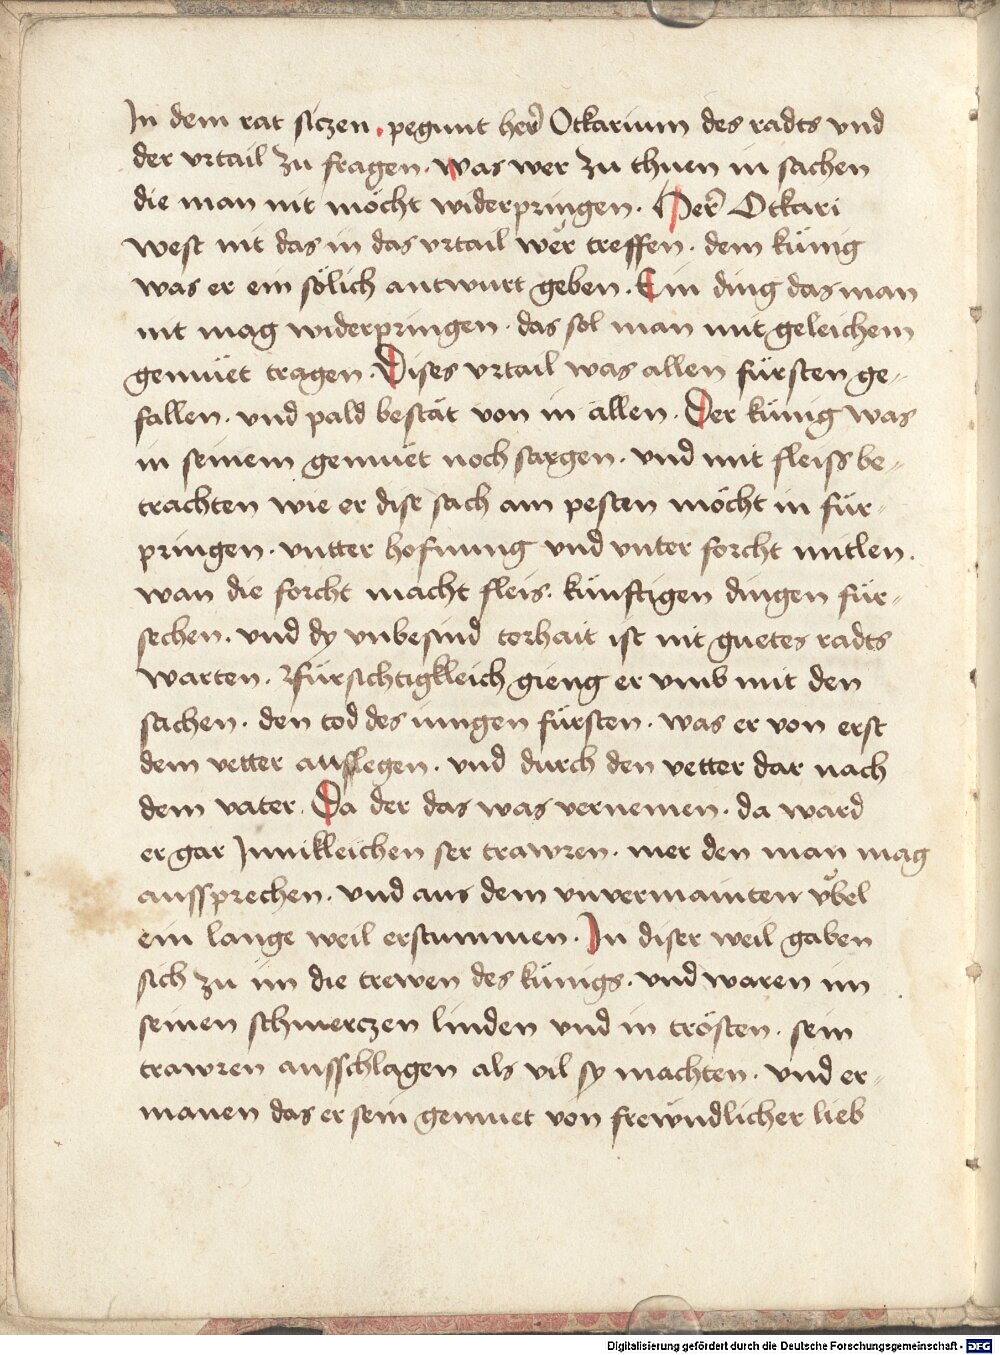 In dem rat siczen. pegunt her̃ Otkarium des radts vnd
der vrtail zu fragen. was wer zu thuen in sachen
die man nit möcht widerpringen. Her̃ Otkari
west nit das in das vrtail wer̃ treffen. dem künig
was er ein sölich antwurt geben. Ein ding das man
nit mag widerpringen. das sol man mit geleichem
gemüet tragen. Dises vrtail was allen fürsten ge-
fallen. vnd pald bestät von in allen. Der künig was
in seinem gemüet noch sargen. vnd mit fleiss be-
trachten wie er dise sach am pesten möcht in für-
pringen. vntter hofnung vnd vnter forcht mitlen.
wan die forcht macht fleis. künftigen dingen für-
sechen. vnd dy vnbesind torhait ist nit guetes radts
warten. Fürsichtigkleich gieng er vmb mit den
sachen. den tod des iungen fürsten. was er von erst
dem vetter auflegen. vnd durch den vetter dar nach
dem vater. Da der das was vernemen. da ward
er gar Innikleichen ser trawren. mer den man mag
aussprechen. vnd aus dem vnvermainten vbel
ein lange weil erstummen. In diser weil gaben
sich zu im die trewen des künigs. vnd waren im
seinen schmerczen linden vnd in trösten. sein
trawren ausschlagen als vil sy machten. vnd er-
manen das er sein gemuet von frewndlicher lieb
Digitalisierung gefördert durch die Deutsche Forschungsgemeinschaft - DFG